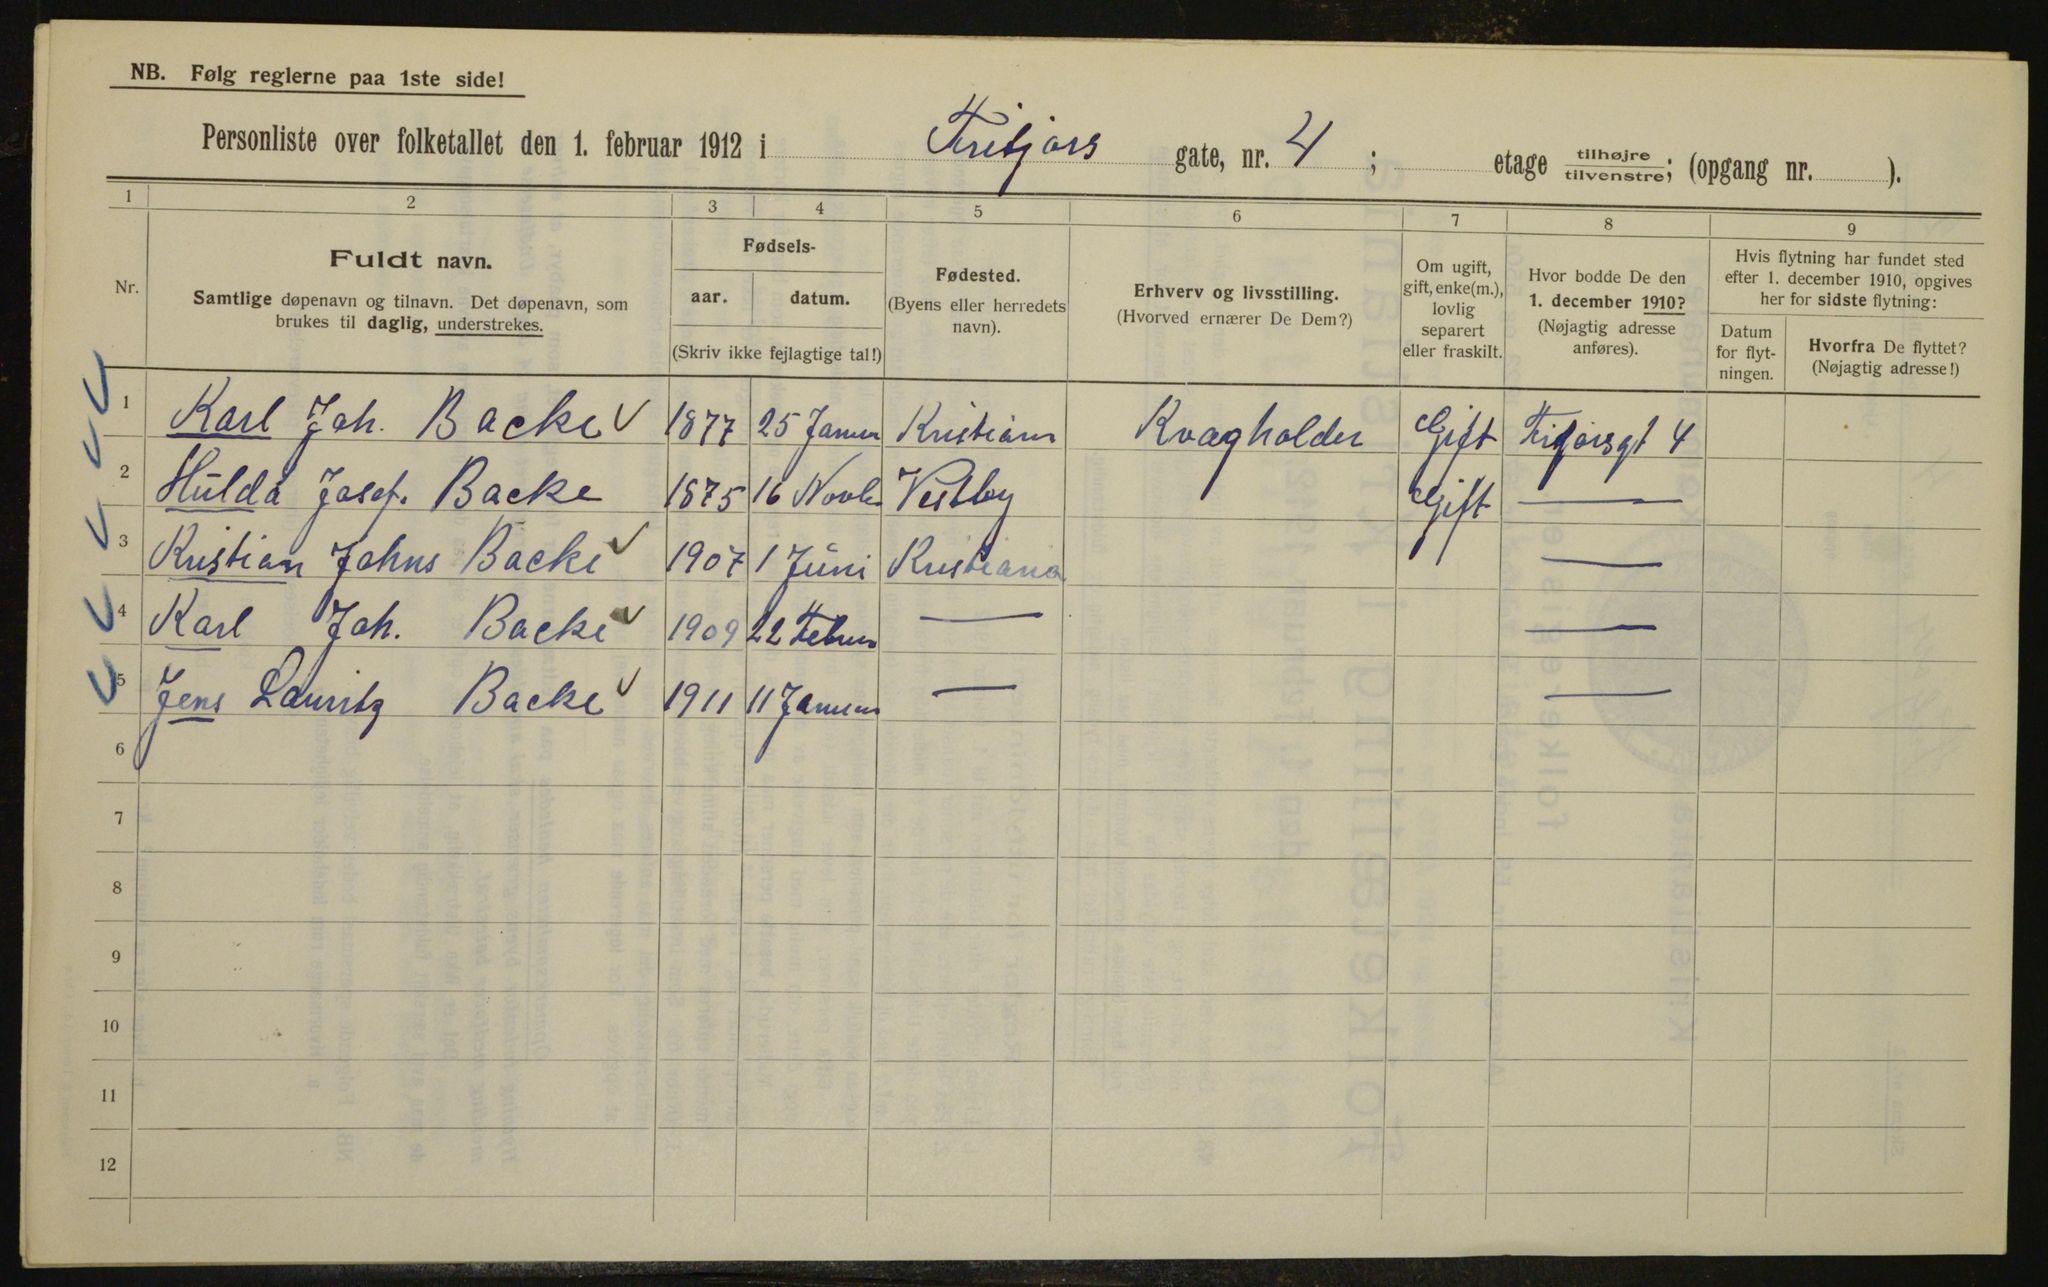 NB. Følg reglerne paa 1ste side!
Personliste over folketallet den 1. februar 1912 i Fritjors gate, nr. 4; etage tilhøjre tilvenstre; (opgang nr. ).
1 2 3 4 5 6 7 8 9
Nr.
Fuldt navn.
Samtlige døpenavn og tilnavn. Det døpenavn, som
brukes til daglig, understrekes.
Fødsels-
aar. datum.
(Skriv ikke fejlagtige tal!)
Fødested.
(Byens eller herredets
navn).
Erhverv og livsstilling.
(Hvorved ernærer De Dem?)
Om ugift,
gift, enke(m.),
lovlig
separert
eller fraskilt.
Hvor bodde De den
1. december 1910?
(Nøjagtig adresse
anføres).
Hvis flytning har fundet sted
efter 1. december 1910, opgives
her for sidste flytning:
Datum
for flyt-
ningen.
Hvorfra De flyttet?
(Nøjagtig adresse!)
1 Karl Joh. Backe 1877 25 Januar Kristiania Kvægholder Gift 4
2 Hulda Josef. Backe 1875 16 Novb Vestby Gift —
3 Kristian Johns Backe 1907 1 Juni Kristiania —
4 Karl Joh. Backe 1909 22 Februar — —
5 Jens Lauritz Backe 1911 11 Januar — —
6
7
8
9
10
11
12